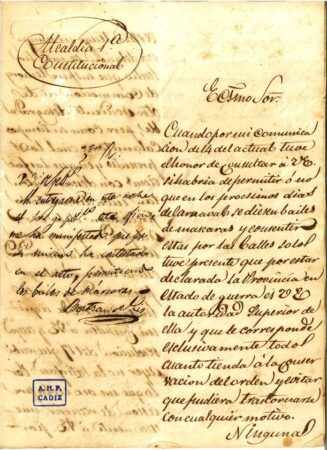 Alcaldía 1ª
Constitucional
Ecsmo Sor.
Cuando por mi comunica
cion de 4 del actual tuve
el honor de consultar á V.E.
si habria de permitir ó no
que en los procsimos dias
de Carnaval se diesen bailes
de mascaras y consentir
estas por las Calles solo
tuve presente que por estar
declarada la Provincia en
estado de guerra es V.E.
la autoridad Superior de
ella y que le corresponde
esclusivamente todo
cuanto tienda á la conser
vacion del orden y evitar
que pudiera trastornarse
con cualquier motivo.
Ninguna
en esta noche
ha manifestado que por
ha contestado
en el acto, permitiendo
los bailes de máscaras.
A.H.P.
CADIZ